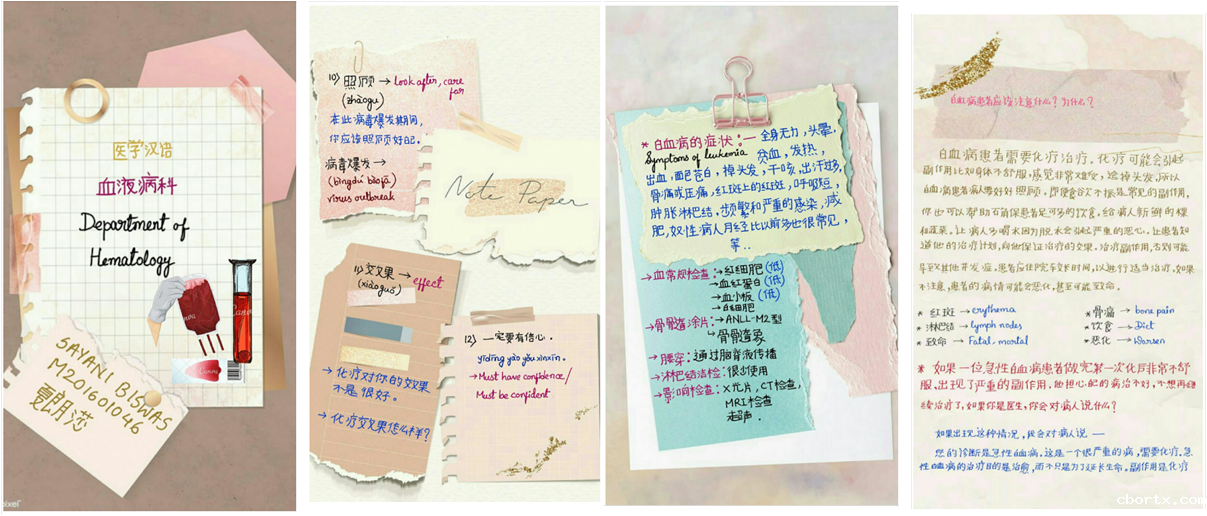 医学汉语
血液病科
Department of
Hematology
SAYANI BISWAS
M201601046
pixel
10) 照顾 → Look after, care
for
(zhàogu)
在此病毒爆发期间,
你应该照顾好自己.
病毒爆发 →
(bìngdú bàofā)
virus outbreak
Note Paper
效果 → effect
(xiàoguǒ)
→ 化疗对你的效果
不是很好。
→ 化疗效果怎么样?
12) 一定要有信心.
yīdìng yào yǒu xìnxīn.
→ Must have confidence/
Must be confident
* 白血病的症状:— 全身无力, 头晕,
Symptoms of leukemia 贫血, 发热,
出血, 面色苍白, 掉头发, 干咳, 出汗过多,
骨痛或压痛, 红斑上的红斑, 呼吸短,
肿胀淋巴结. 频繁和严重的感染, 减
肥, 女性病人月经比以前多也很常见,
等..
→ 血常规检查: → 红细胞 (低)
→ 血红蛋白 (低)
→ 血小板 (低)
→ 白细胞
→ 骨髓涂片: → ANLL-M2型
→ 骨髓造象
→ 腰穿: 通过脑脊液传播
→ 淋巴结活检: 很少使用
→ 影响检查: X光片, CT检查,
MRI检查
超声.
白血病患者应该注意什么? 为什么?
白血病患者需要化疗治疗, 化疗可能会引起
副作用比如身体不舒服, 感觉非常难受, 会掉头发, 所以
白血病患者病人要好好照顾, 即使食欲不振是常见的副作用,
你也可以帮助确保患者足够多的饮食, 给病人新鲜的水果
和蔬菜, 让病人多喝水因为脱水会引起严重的恶心. 让患者知
道他的治疗计划, 向他保证治疗的效果, 治疗副作用, 否则可能
导致其他并发症, 患者应住院较长时间, 以进行适当治疗, 如果
不注意, 患者的病情可能会恶化, 甚至可能致命.
* 红斑 → erythema * 骨痛 → bone pain
* 淋巴结 → lymph nodes * 饮食 → Diet
* 致命 → Fatal, mortal * 恶化 → Worsen
* 如果一位急性白血病患者做完第一次化疗后非常不舒
服, 出现了严重的副作用, 他担心他的病治不好, 不想再继
续治疗了, 如果你是医生, 你会对病人说什么?
如果出现这种情况, 我会对病人说 —
您的诊断是急性白血病, 这是一个很严重的病, 需要化疗. 急
性白血病的治疗目的是治愈, 而不只是为了延长生命. 副作用是化疗
cbortx.com